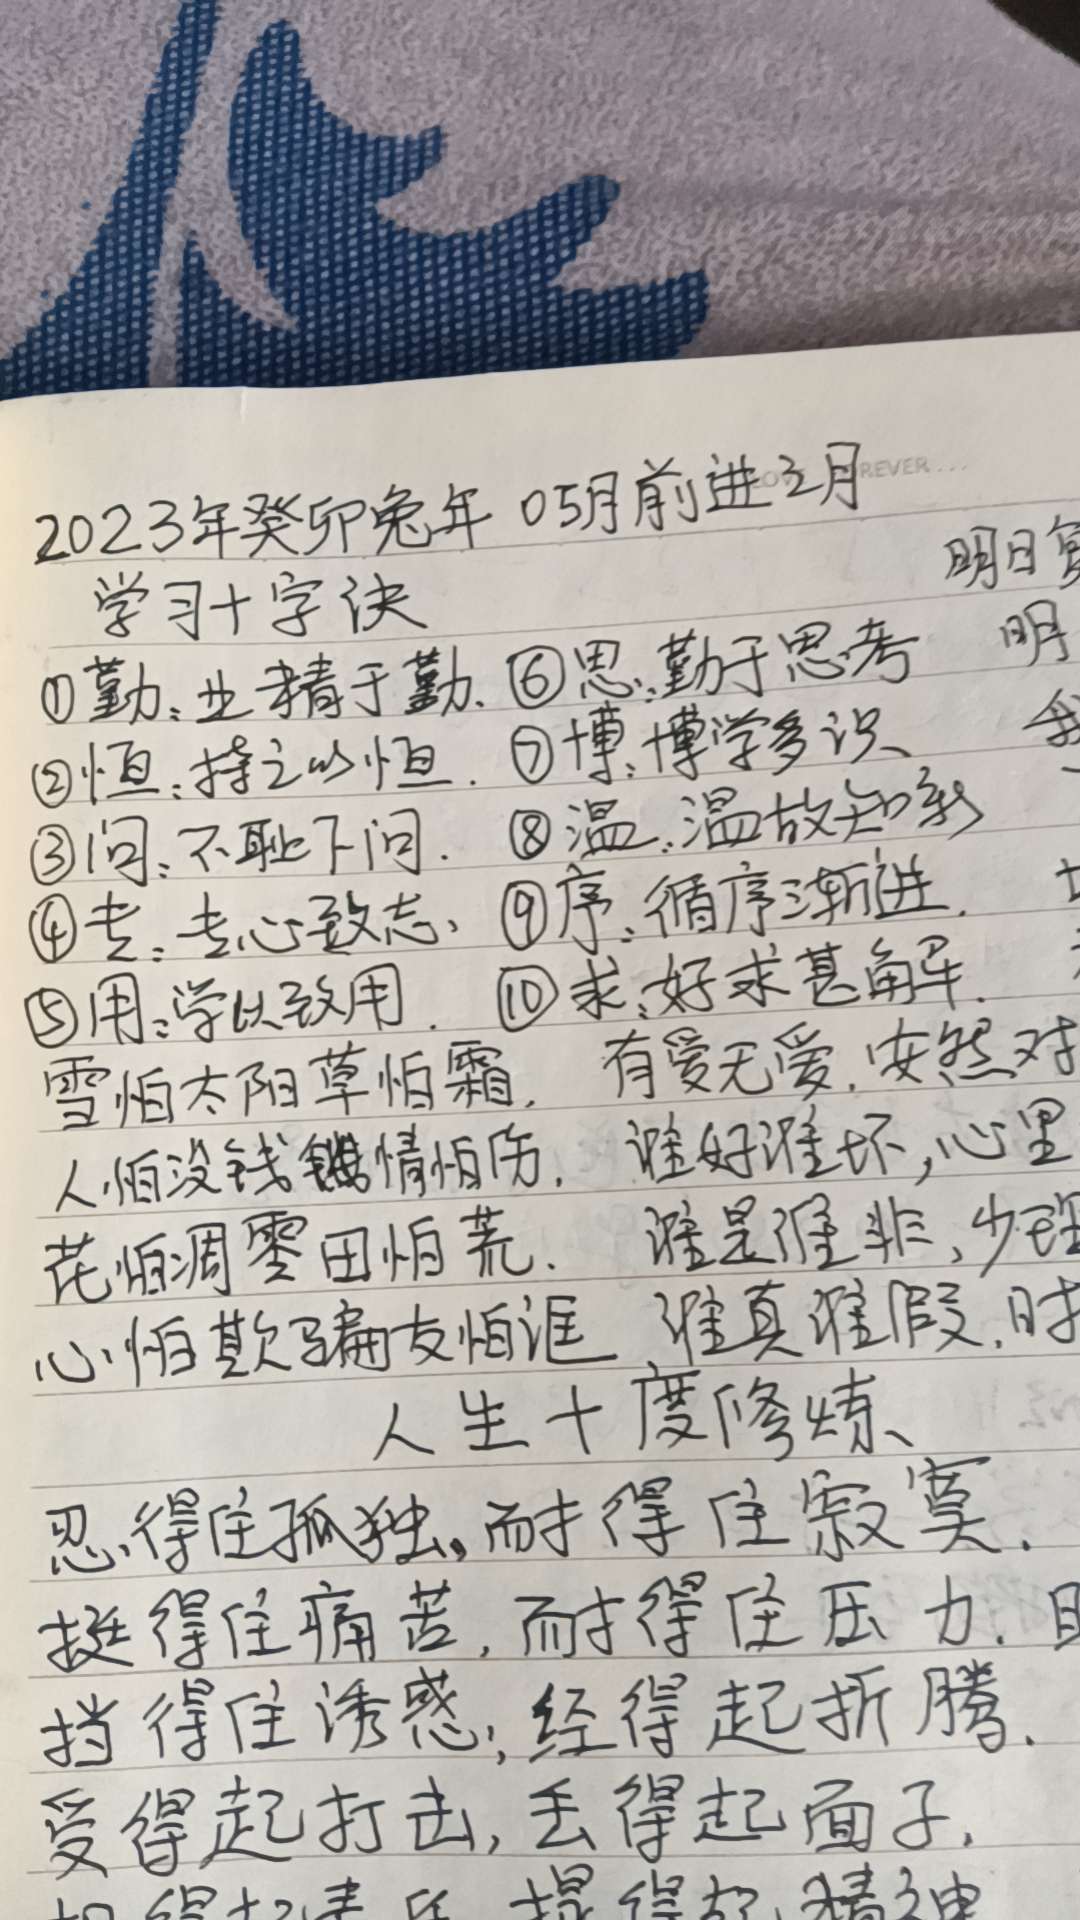 2023年癸卯兔年 05月前进之月
学习十字诀
明日
①勤:业精于勤. ⑥思:勤于思考 明
②恒:持之以恒. ⑦博:博学多识、 我
③问:不耻下问. ⑧温:温故知新
④专:专心致志、 ⑨序:循序渐进.
⑤用:学以致用. ⑩求:好求甚解.
雪怕太阳草怕霜. 有爱无爱.安然对
人怕没钱情怕伤. 谁好谁坏,心里
花怕凋零田怕荒. 谁是谁非,少理
心怕欺骗友怕诓 谁真谁假.时
人生十度修炼、
忍得住孤独,耐得住寂寞.
挺得住痛苦,耐得住压力.
挡得住诱惑;经得起折腾.
受得起打击,丢得起面子.
担得起责任 提得起精神